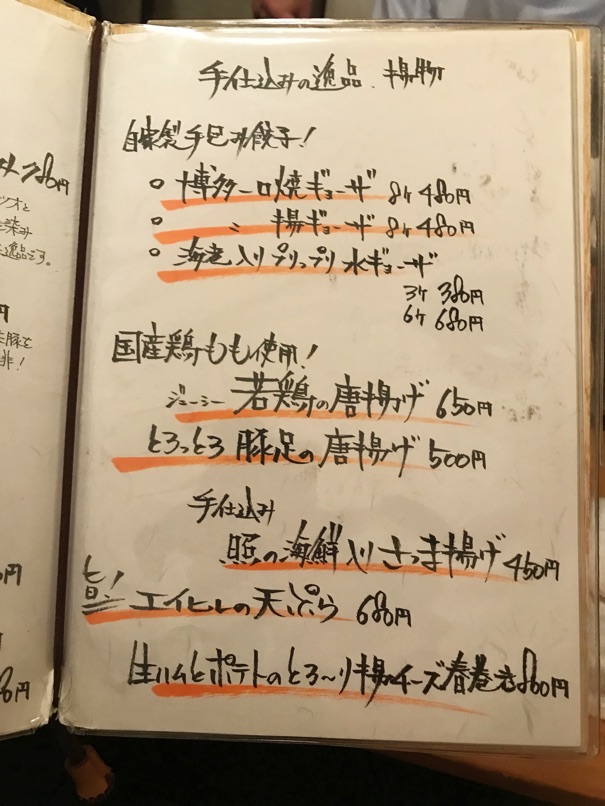 手仕込みの逸品、揚物
自家製手包み餃子!
博多一口焼ギョーザ 8ヶ 480円
〃 揚ギョーザ 8ヶ 480円
海老入りプリップリ水ギョーザ
3ヶ 380円
6ヶ 680円
国産鶏もも使用!
ジューシー 若鶏の唐揚げ 650円
とろっとろ 豚足の唐揚げ 500円
手仕込み
照の海鮮入りさつま揚げ 450円
旨! エイヒレの天ぷら 680円
生ハムとポテトのとろ〜り揚チーズ春巻き 860円
円
ツオと
染み
逸品です。
円
豚を
非!
円
円